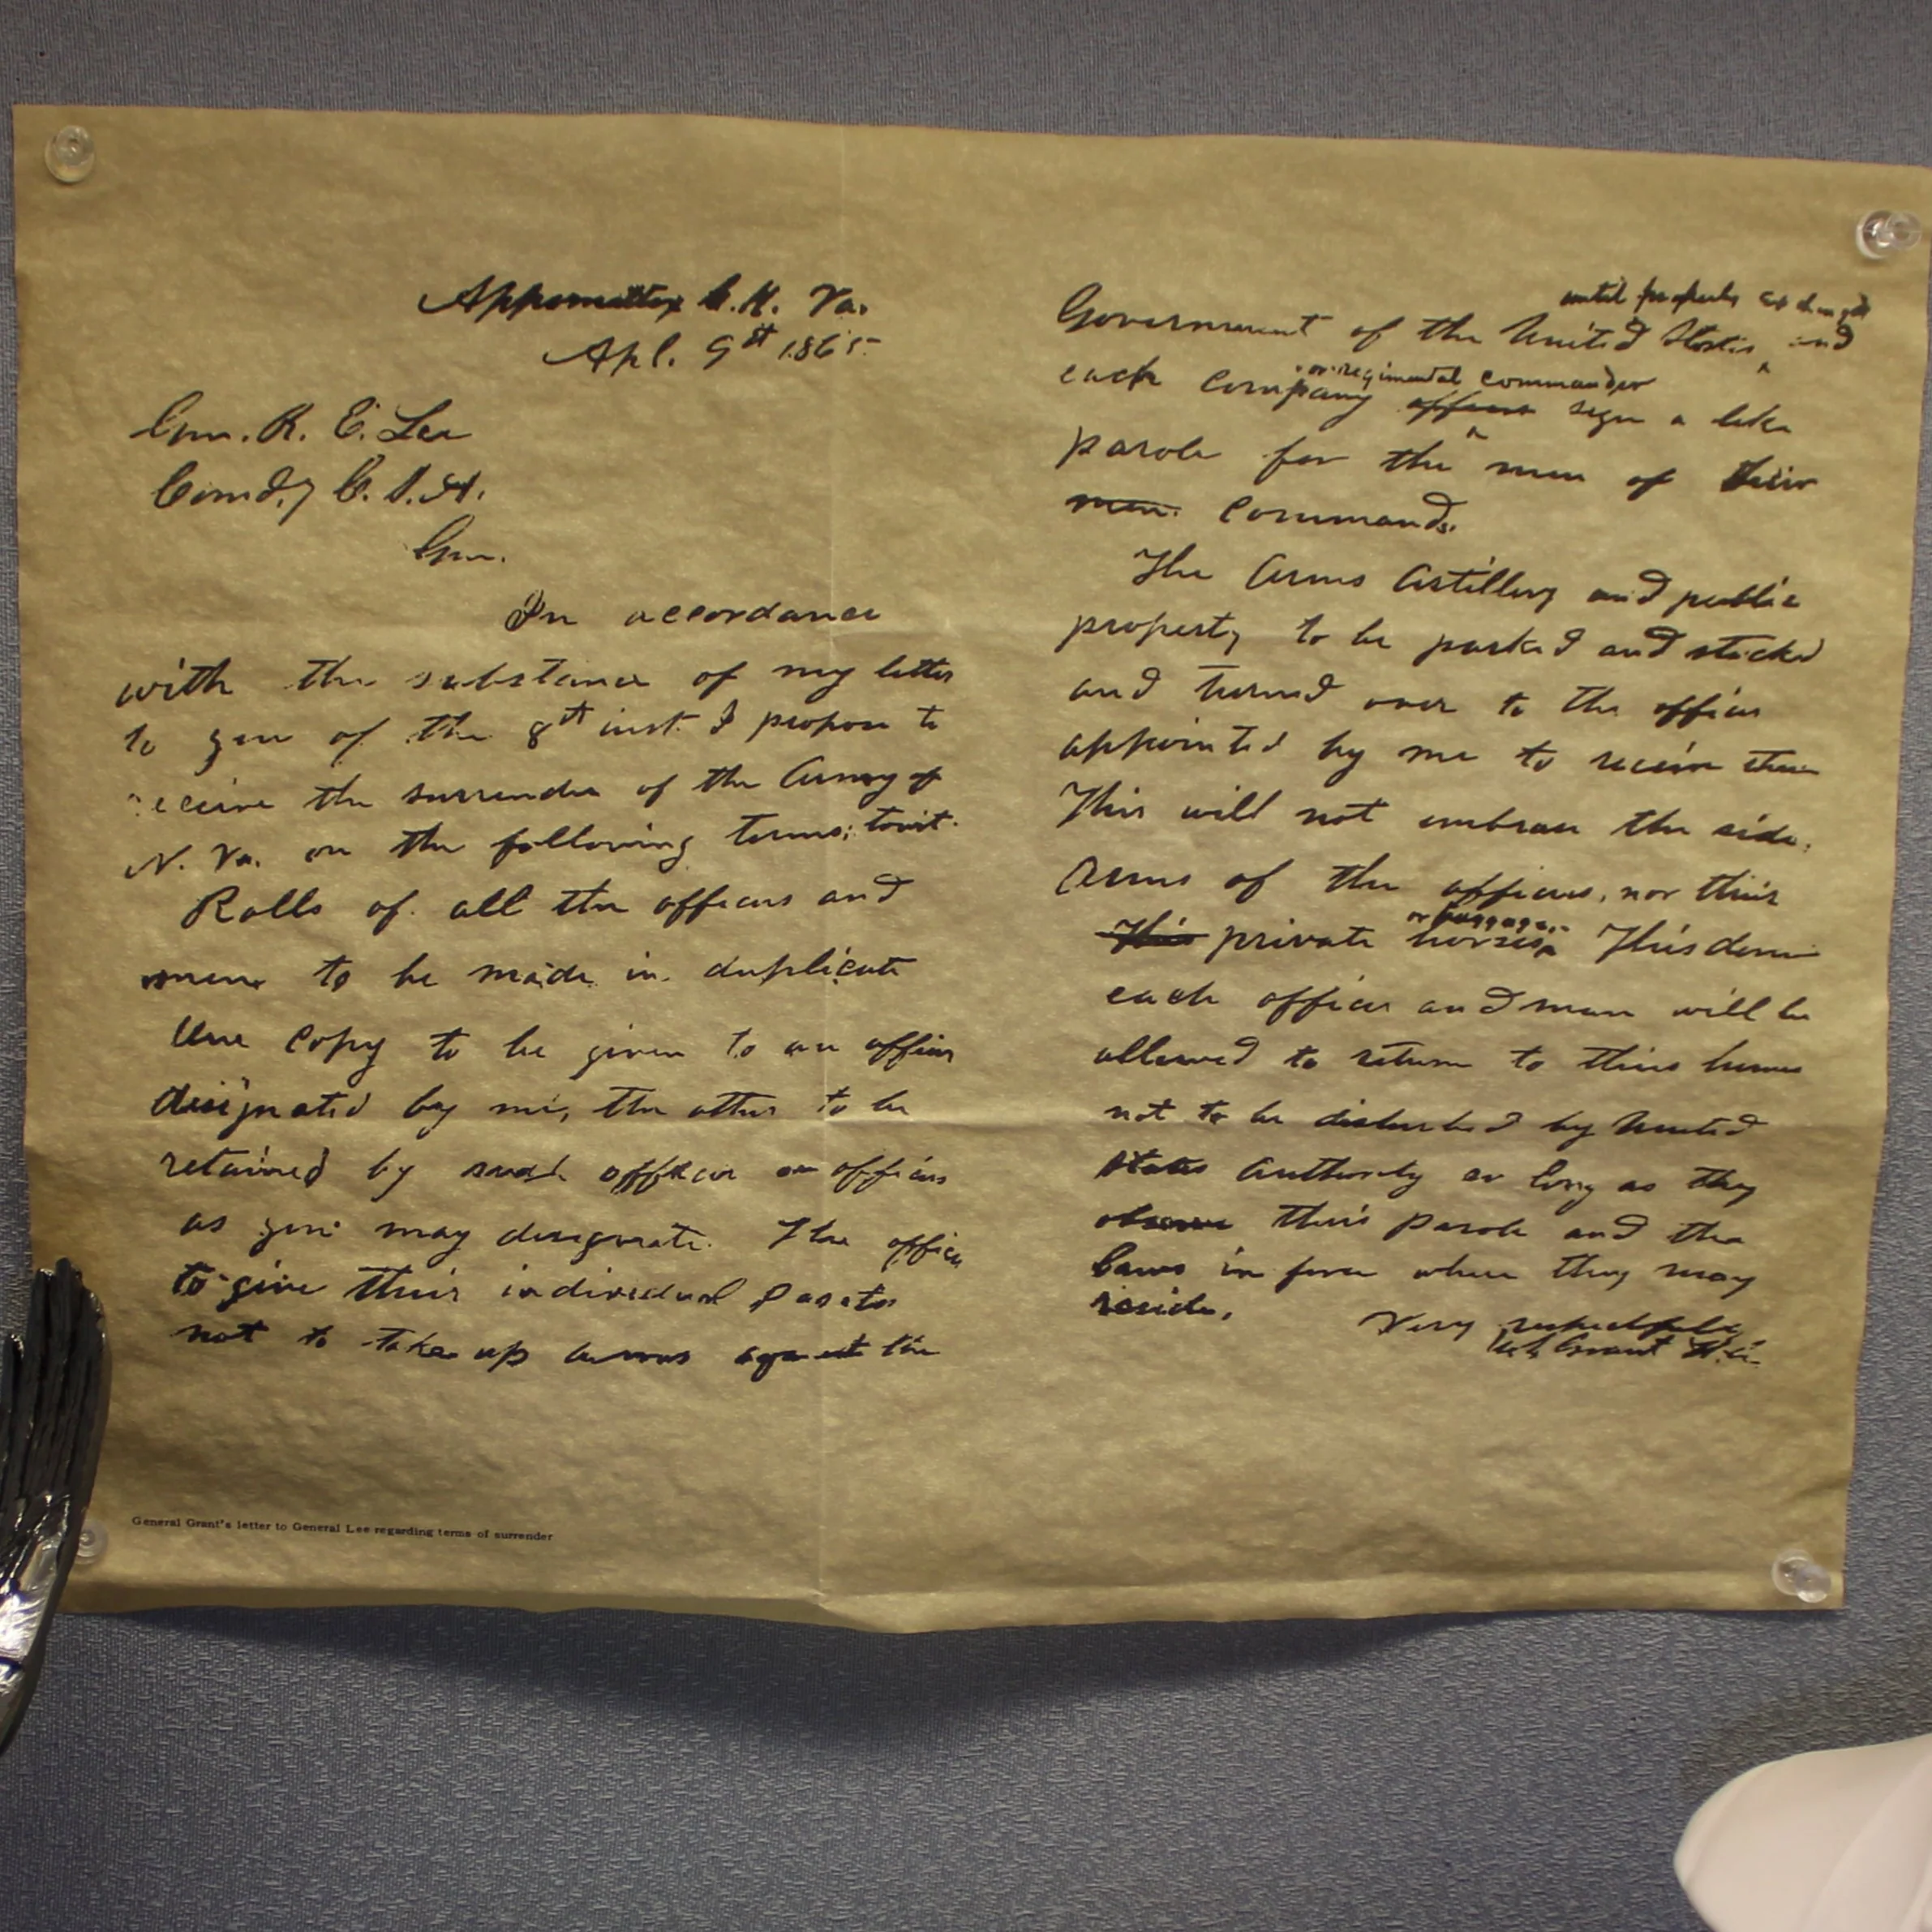 Appomattox C.H. Va.
Apl. 9th 1865
Gen. R. E. Lee
Comd.g C.S.A.
Gen.
In accordance
with the substance of my letter
to you of the 8th inst. I propose to
receive the surrender of the Army of
N. Va. on the following terms; towit.
Rolls of all the officers and
men to be made in duplicate
One copy to be given to an officer
designated by me, the other to be
retained by such officer or officers
as you may designate. The officers
to give their individual paroles
not to take up arms against the
until properly exchanged
Government of the United States and
or regimental commander
each company officer sign a like
parole for the men of their
men. Commands.
The Arms Artillery and public
property to be parked and stacked
and turned over to the officer
appointed by me to receive them
This will not embrace the side
Arms of the officers, nor their
or baggage.
This private horses This done
each officer and man will be
allowed to return to their homes
not to be disturbed by United
States Authority so long as they
observe their parole and the
laws in force where they may
reside.
Very respectfully
U.S. Grant Lt. Gn.
General Grant's letter to General Lee regarding terms of surrender